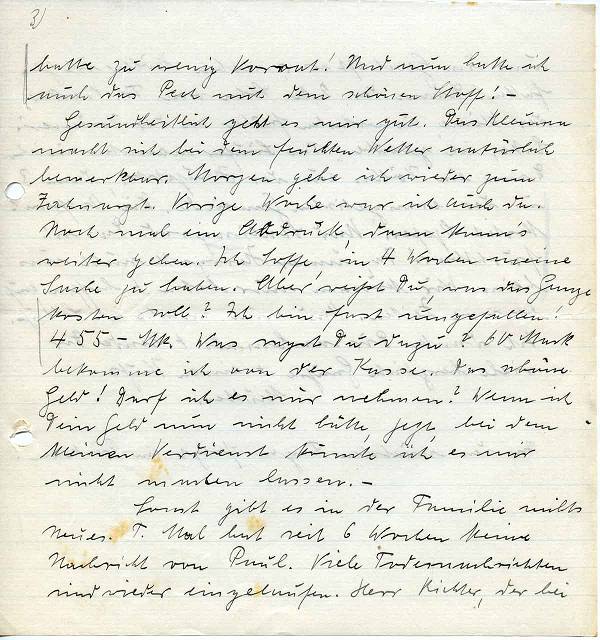 3)
hatte zu wenig Vorrat! Und nun hatte ich
auch das Pech mit dem schönen Stoff! –
Gesundheitlich geht es mir gut. Das Rheuma
macht sich bei dem feuchten Wetter natürlich
bemerkbar. Morgen gehe ich wieder zum
Zahnarzt. Vorige Woche war ich auch da.
Noch mal ein Abdruck, dann kann's
weiter gehen. Ich hoffe, in 4 Wochen meine
Sache zu haben. Aber, weißt Du, was das Ganze
kosten soll? Ich bin fast umgefallen!
455 – Mk. Was sagst Du dazu? 60 Mark
bekomme ich von der Kasse. Das schöne
Geld! Darf ich es mir nehmen? Wenn ich
Dein Geld nun nicht hätte, jetzt, bei dem
kleinen Verdienst könnte ich es mir
nicht machen lassen. –
Sonst gibt es in der Familie nichts
neues. T. Mal hat seit 6 Wochen keine
Nachricht von Paul. Viele Todesnachrichten
sind wieder eingelaufen. Herr Richter, der bei